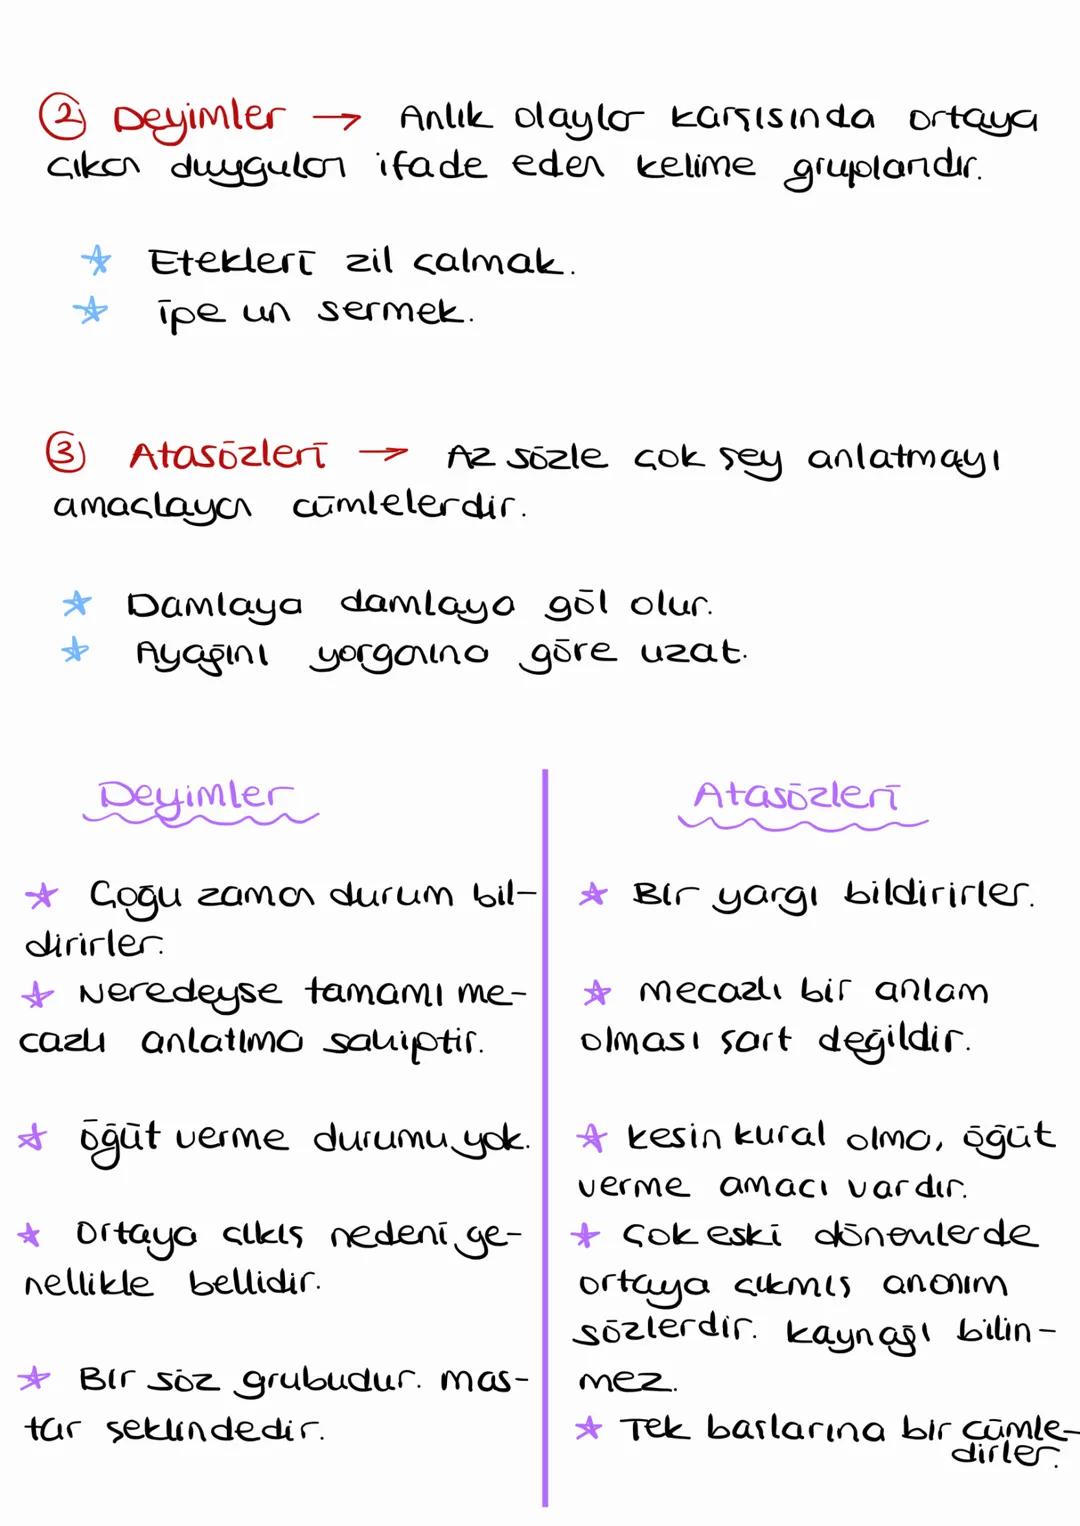 ② Deyimler → Anlık olaylar karşısında ortaya
çıkan duyguları ifade eden kelime gruplarıdır.
★ Etekleri zil çalmak.
★ İpe un sermek.
③ Atasözleri → Az sözle çok şey anlatmayı
amaçlayan cümlelerdir.
★ Damlaya damlaya göl olur.
★ Ayağını yorganına göre uzat.
Deyimler
★ Çoğu zaman durum bil-
dirirler.
★ Neredeyse tamamı me-
cazlı anlatıma sahiptir.
★ öğüt verme durumu yok.
★ Ortaya çıkış nedeni ge-
nellikle bellidir.
★ Bir söz grubudur. mas-
tar şeklindedir.
Atasözleri
★ Bir yargı bildirirler.
★ mecazlı bir anlam
olması şart değildir.
★ kesin kural olma, öğüt
verme amacı vardır.
★ Çok eski dönemlerde
ortaya çıkmış anonim
sözlerdir. kaynağı bilin-
mez.
★ Tek başlarına bir cümle-
dirler.